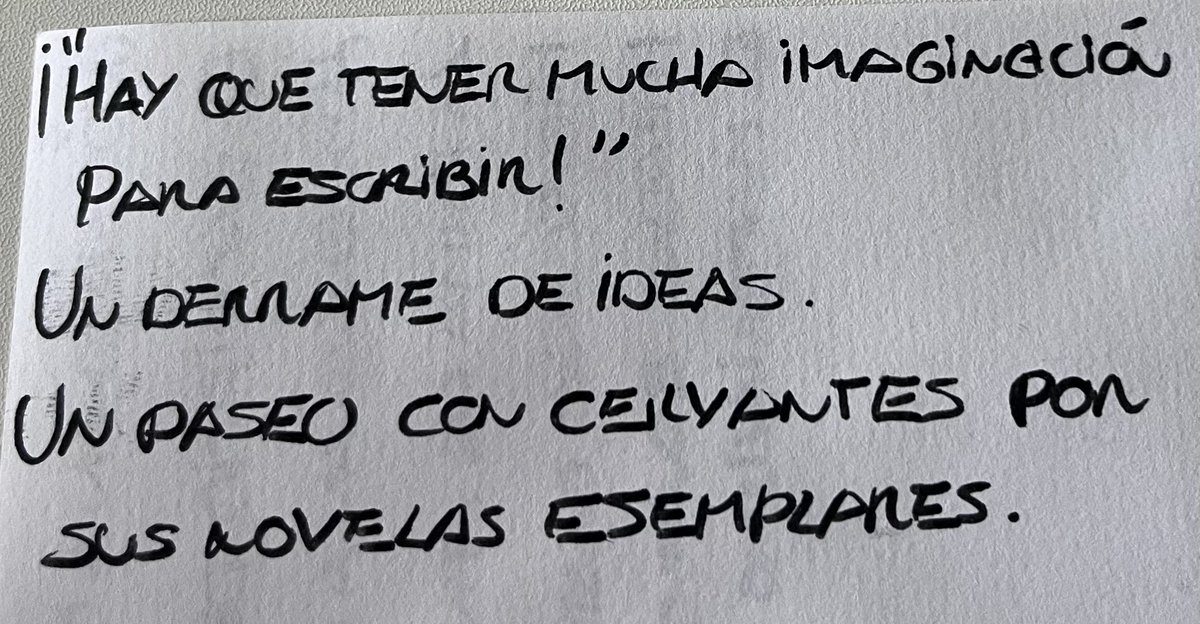 ¡"HAY QUE TENER MUCHA IMAGINACIÓN
PARA ESCRIBIR!"
UN DERRAME DE IDEAS.
UN PASEO CON CERVANTES POR
SUS NOVELAS ESEMPLARES.